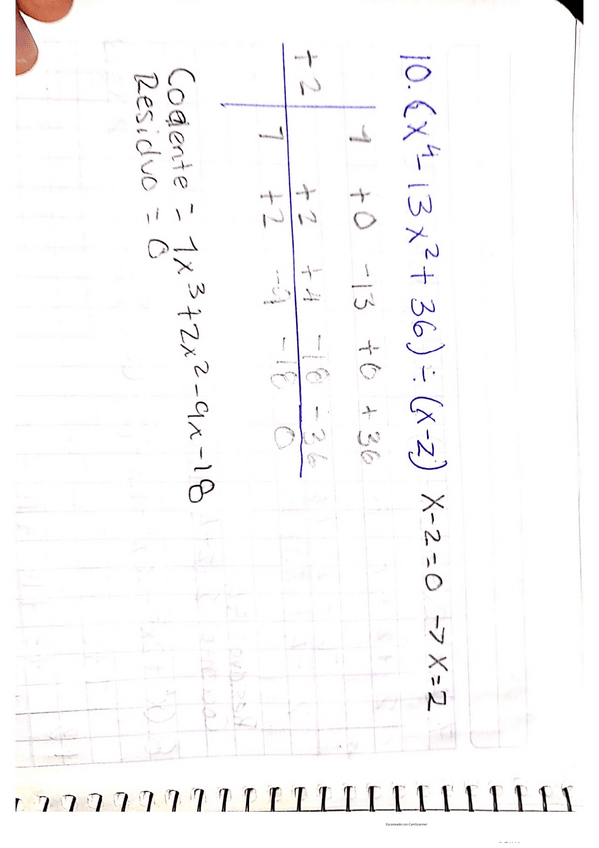 10. (x⁴-13x²+36)÷(x-2) x-2=0 → x=2
1 +0 -13 +0 +36
+2 +2 +4 -18 -36
1 +2 -9 -18 0
Cociente = 1x³+2x²-9x-18
Residuo = 0
Escaneado con CamScanner